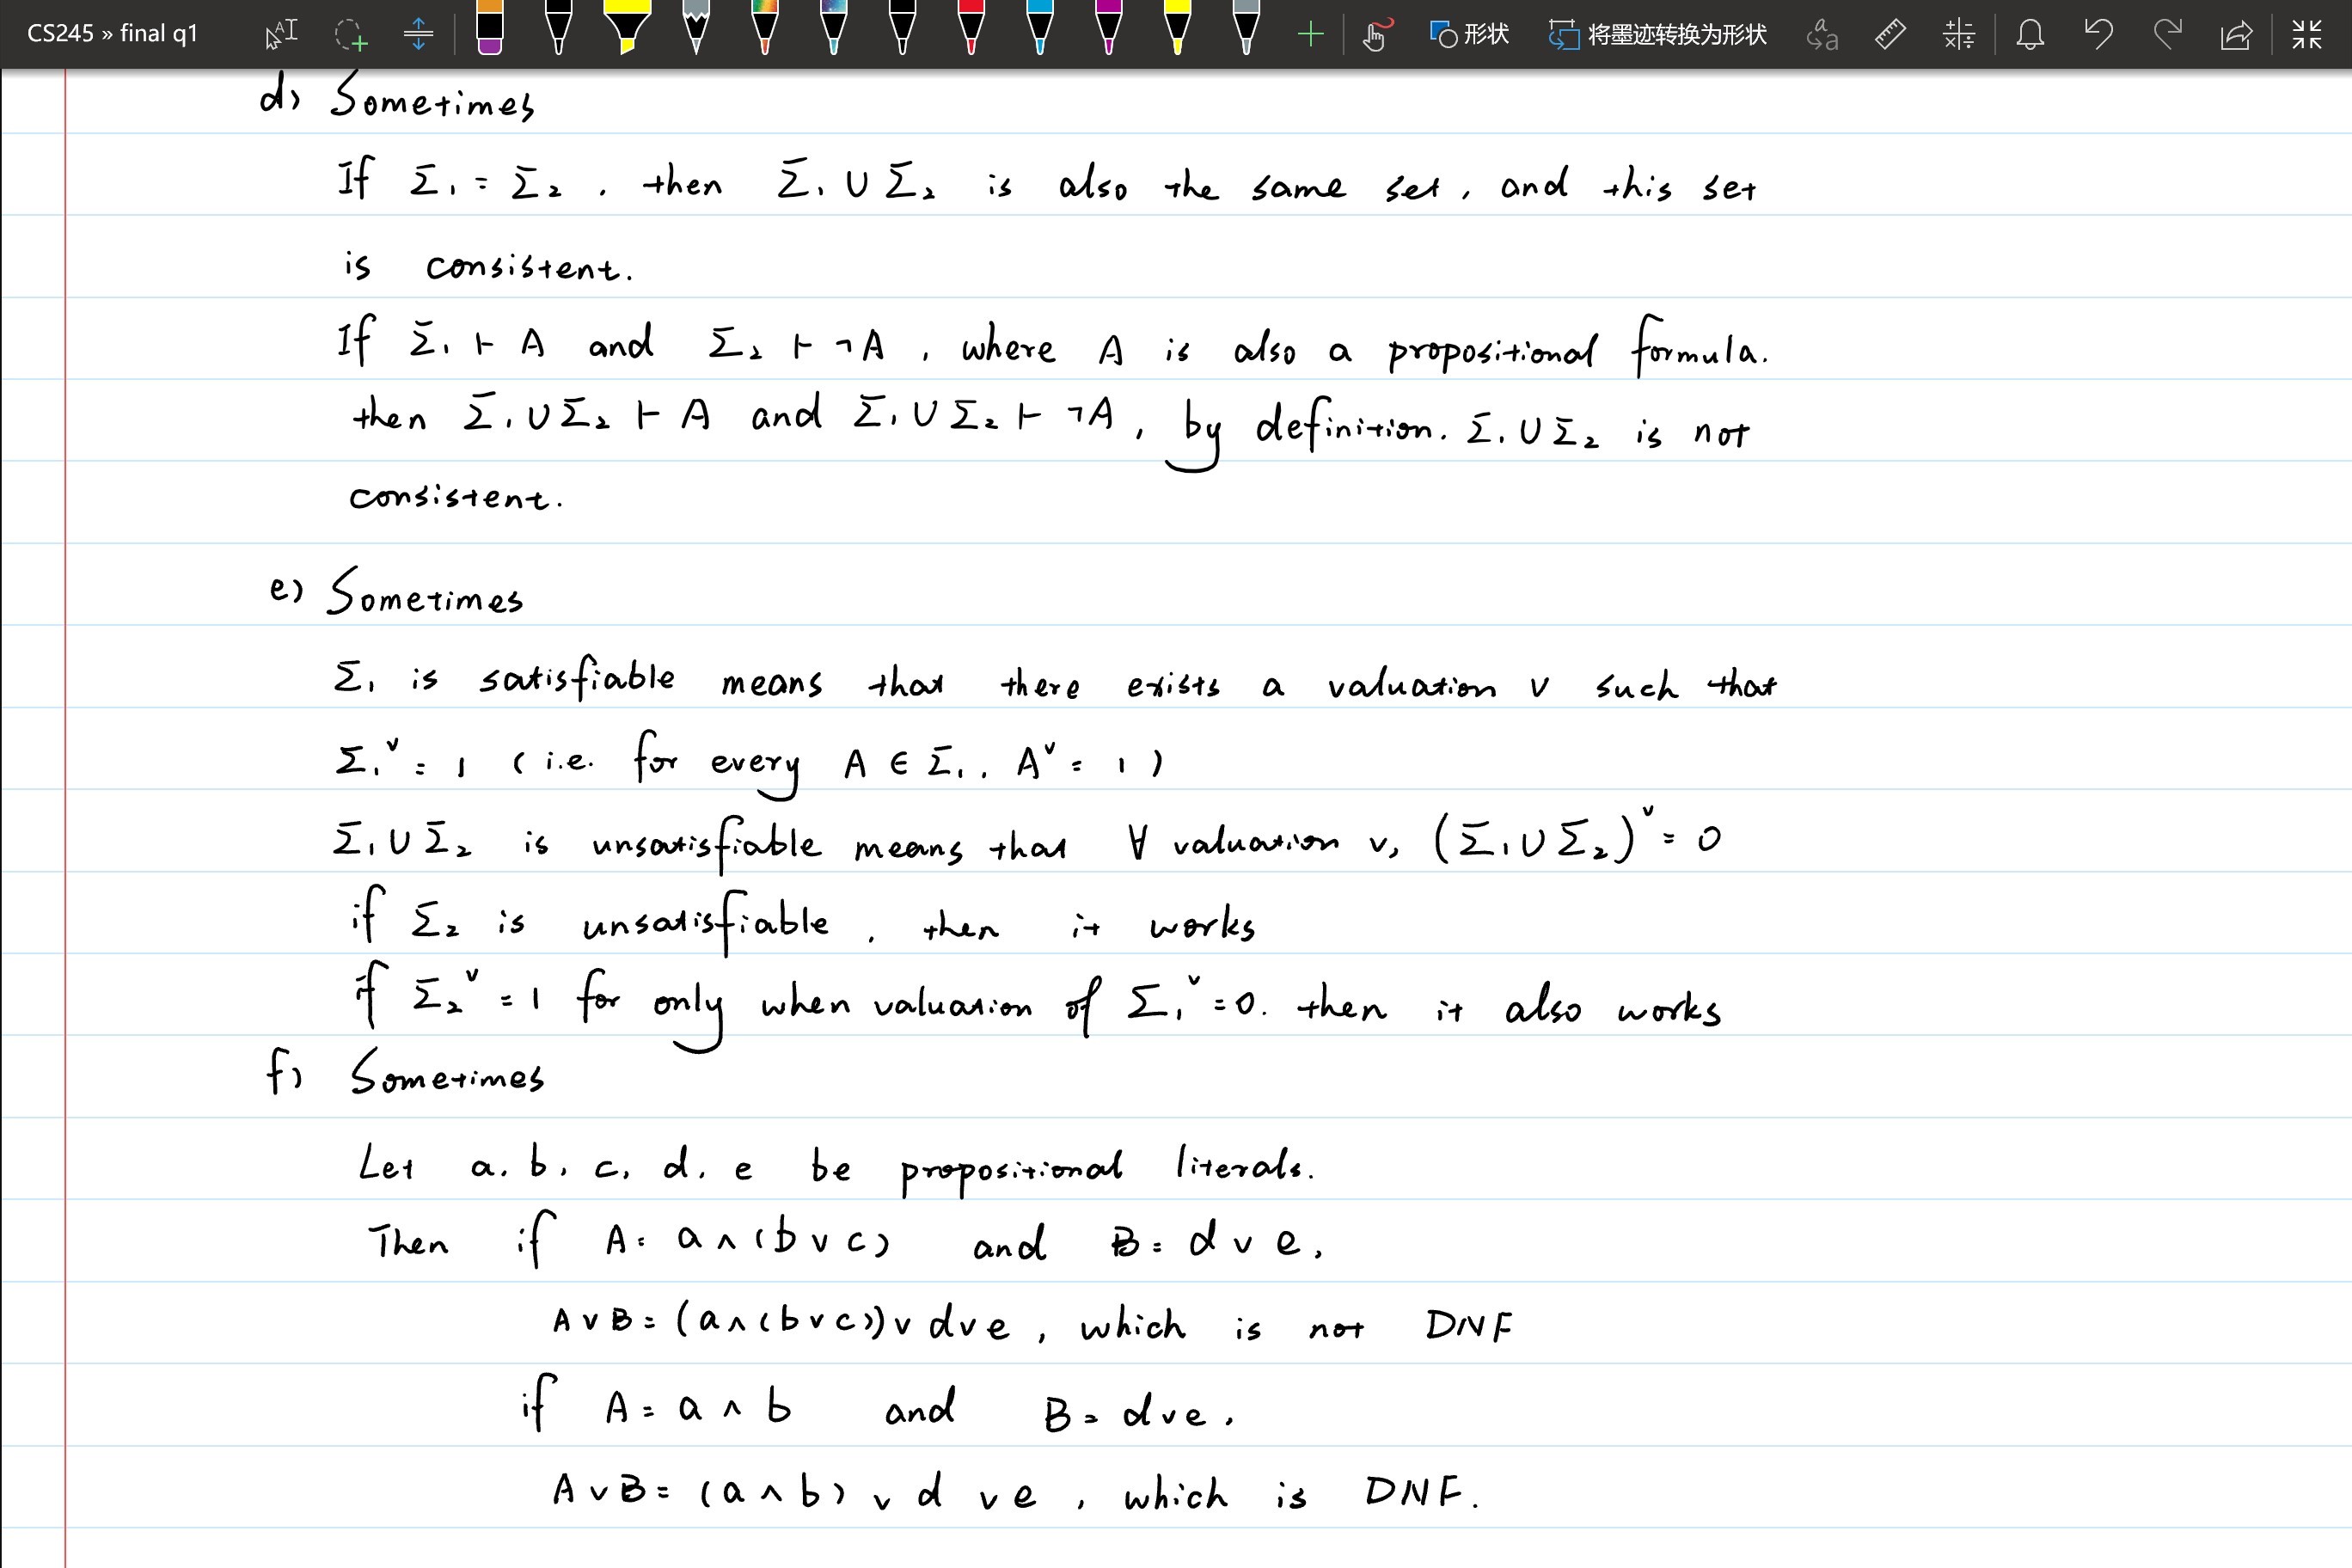 CS245 » final q1
形状
将墨迹转换为形状
d) Sometimes
If Σ₁ = Σ₂, then Σ₁ ∪ Σ₂ is also the same set, and this set
is consistent.
If Σ₁ ⊢ A and Σ₂ ⊢ ¬A, where A is also a propositional formula.
then Σ₁ ∪ Σ₂ ⊢ A and Σ₁ ∪ Σ₂ ⊢ ¬A, by definition. Σ₁ ∪ Σ₂ is not
consistent.
e) Sometimes
Σ₁ is satisfiable means that there exists a valuation v such that
Σ₁ᵛ = 1 (i.e. for every A ∈ Σ₁, Aᵛ = 1)
Σ₁ ∪ Σ₂ is unsatisfiable means that ∀ valuation v, (Σ₁ ∪ Σ₂)ᵛ = 0
if Σ₂ is unsatisfiable, then it works
if Σ₂ᵛ = 1 for only when valuation of Σ₁ᵛ = 0. then it also works
f) Sometimes
Let a, b, c, d, e be propositional literals.
Then if A = a ∧ (b ∨ c) and B = d ∨ e,
A ∨ B = (a ∧ (b ∨ c)) ∨ d ∨ e, which is not DNF
if A = a ∧ b and B = d ∨ e,
A ∨ B = (a ∧ b) ∨ d ∨ e, which is DNF.